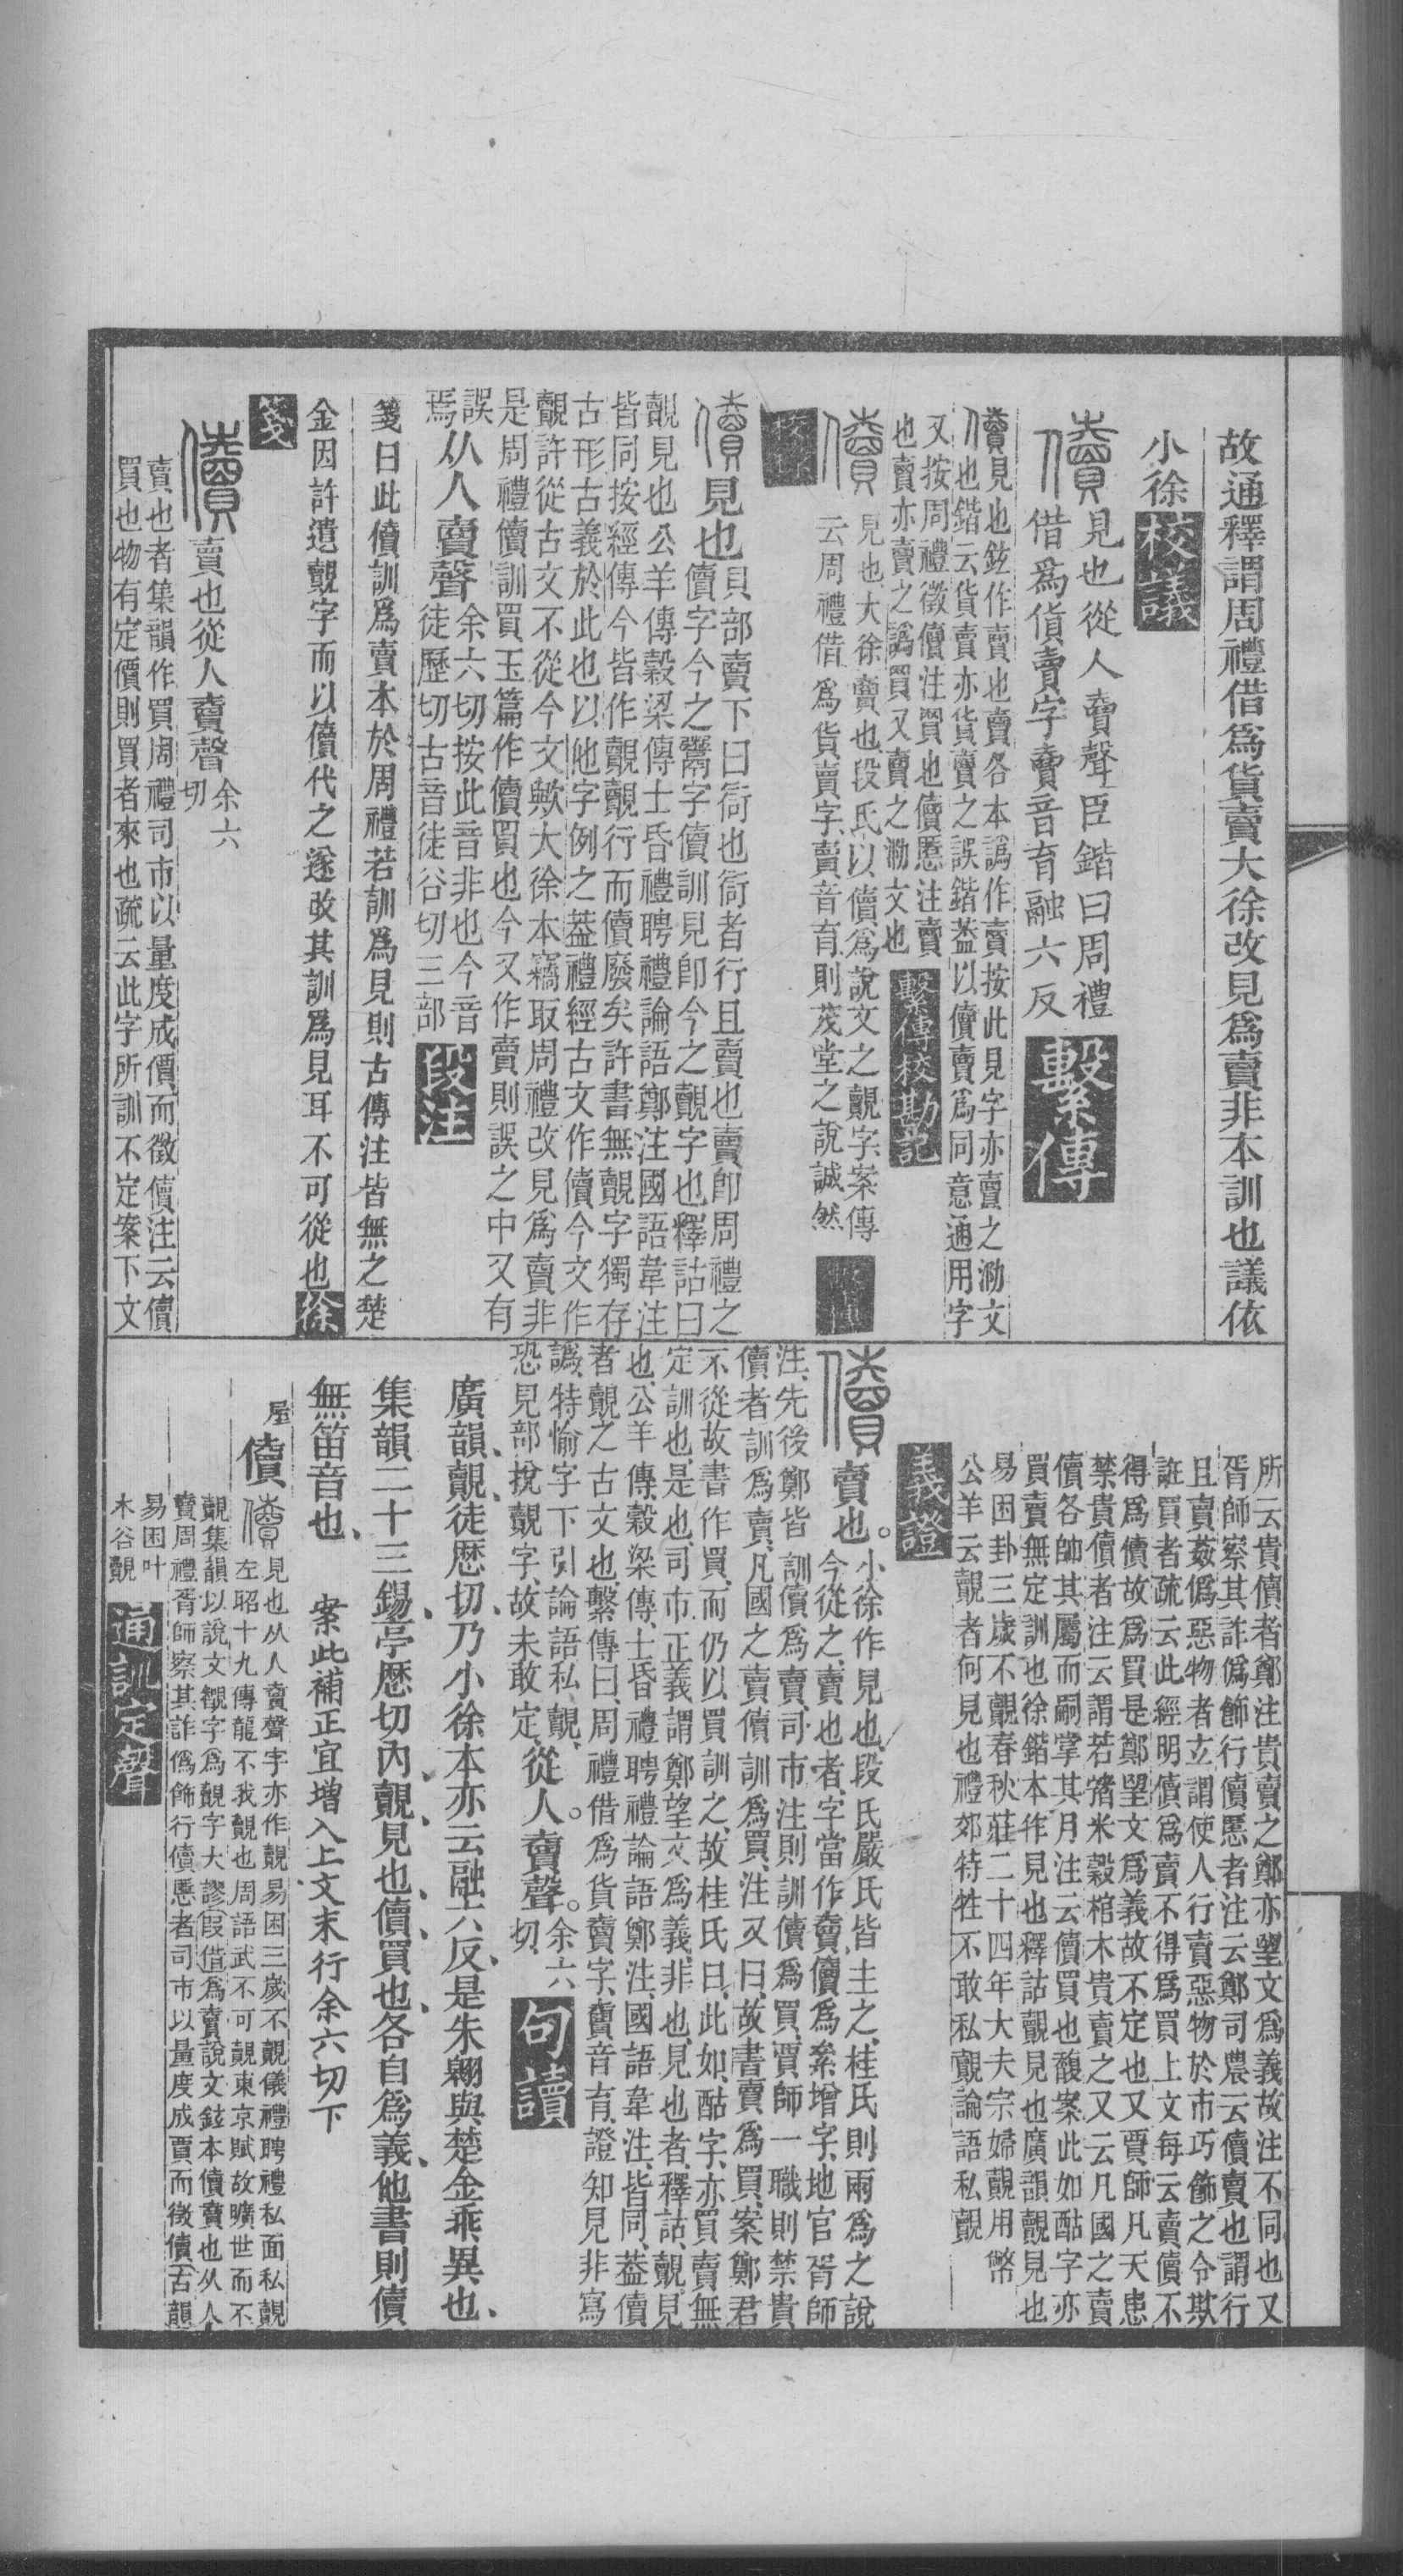 故通釋謂周禮借爲貨賣大徐改見爲賣非本訓也議依
小徐校議
儥見也從人𧶠聲臣鍇曰周禮
借爲貨賣字𧶠音育融六反
繫傳
儥見也鉉作賣也賣各本譌作𧶠按此見字亦賣之泐文
也鍇云貨賣亦貨𧶠之誤鍇葢以儥𧶠爲同意通用字
又按周禮徵儥注買也儥慝注賣
也𧶠亦賣之譌買又賣之泐文也
繫傳校勘記
儥見也大徐賣也段氏以儥爲說文之覿字案傳
云周禮借爲貨賣字𧶠音育則茂堂之說誠然
儥見也
貝部𧶠下曰衒也衒者行且賣也𧶠卽周禮之
儥字今之鬻字儥訓見卽今之覿字也釋詁曰
覿見也公羊傳穀梁傳士昏禮聘禮論語鄭注國語韋注
皆同按經傳今皆作覿覿行而儥廢矣許書無覿字獨存
古形古義於此也以他字例之葢禮經古文作儥今文作
覿許從古文不從今文歟大徐本竊取周禮改見爲賣非
是周禮儥訓買玉篇作儥買也今又作賣則誤之中又有
誤焉
从人𧶠聲
余六切按此音非也今音
徒歷切古音徒谷切三部
段注
箋曰此儥訓爲賣本於周禮若訓爲見則古傳注皆無之楚
金因許遺覿字而以儥代之遂改其訓爲見耳不可從也徐
箋
儥賣也從人𧶠聲余六切
賣也者集韻作買周禮司市以量度成價而徵儥注云儥
買也物有定價則買者來也疏云此字所訓不定案下文
所云貴儥者鄭注貴賣之鄭亦望文爲義故注不同也又
胥師察其詐僞飾行儥慝者注云鄭司農云儥賣也謂行
且賣姦僞惡物者立謂使人行賣惡物於市巧飾之令欺
誑買者疏云此經明儥爲賣不得爲買上文每云賣儥不
得爲儥故爲買是鄭望文爲義故不定也又賈師凡天患
禁貴儥者注云謂若豬米穀棺木貴賣之又云凡國之賣
儥各帥其屬而嗣掌其月注云儥買也馥案此如酤字亦
買賣無定訓也徐鍇本作見也釋詁覿見也廣韻覿見也
易困卦三歲不覿春秋莊二十四年大夫宗婦覿用幣
公羊云覿者何見也禮郊特牲不敢私覿論語私覿
義證
儥賣也。
小徐作見也、段氏嚴氏皆主之、桂氏則兩爲之說
今從之、賣也者、字當作𧶠、儥爲絫增字、地官胥師
注、先後鄭皆訓儥爲賣、司市注則訓儥爲買、賈師一職則禁貴
儥者訓爲賣、凡國之賣儥訓爲買、注又曰、故書賣爲買、案鄭君
不從故書作買、而仍以買訓之、故桂氏曰、此如酤字、亦買賣無
定訓也、是也、司市正義謂鄭望文爲義、非也、見也者、釋詁、覿、見
也、公羊傳、穀梁傳、士昏禮聘禮論語鄭注、國語韋注、皆同、葢儥
者覿之古文也、繫傳曰、周禮借爲貨賣字、𧶠音育、證知見非寫
譌、特愉字下引論語私覿、
恐見部挩覿字、故未敢定、
從人。𧶠聲。余六切、
句讀
廣韻、覿、徒歷切、乃小徐本亦云融六反、是朱翱與楚金乖異也、
集韻二十三錫、亭歷切內、覿、見也、儥、買也、各自爲義、他書則儥
無笛音也、　案此補正宜增入上文末行余六切下
屋
儥儥見也从人𧶠聲字亦作覿易困三歲不覿儀禮聘禮私面私覿
左昭十九傳龍不我覿也周語武不可覿東京賦故曠世而不
覿集韻以說文𧡪字爲覿字大謬叚借爲𧶠說文鉉本儥賣也从人
賣周禮胥師察其詐僞飾行儥慝者司市以量度成賈而徵儥古韻
易困叶
木谷覿
通訓定聲